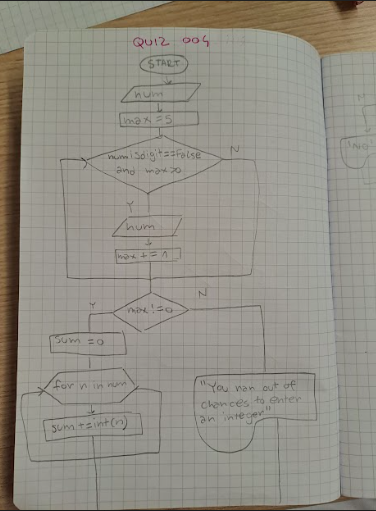 QUIZ 004
START
num
max = 5
num.isdigit==False
and max>0
N
Y
num
max += 1
max!=0
Y
N
sum = 0
for n in num
sum+=int(n)
"You ran out of
chances to enter
an integer"